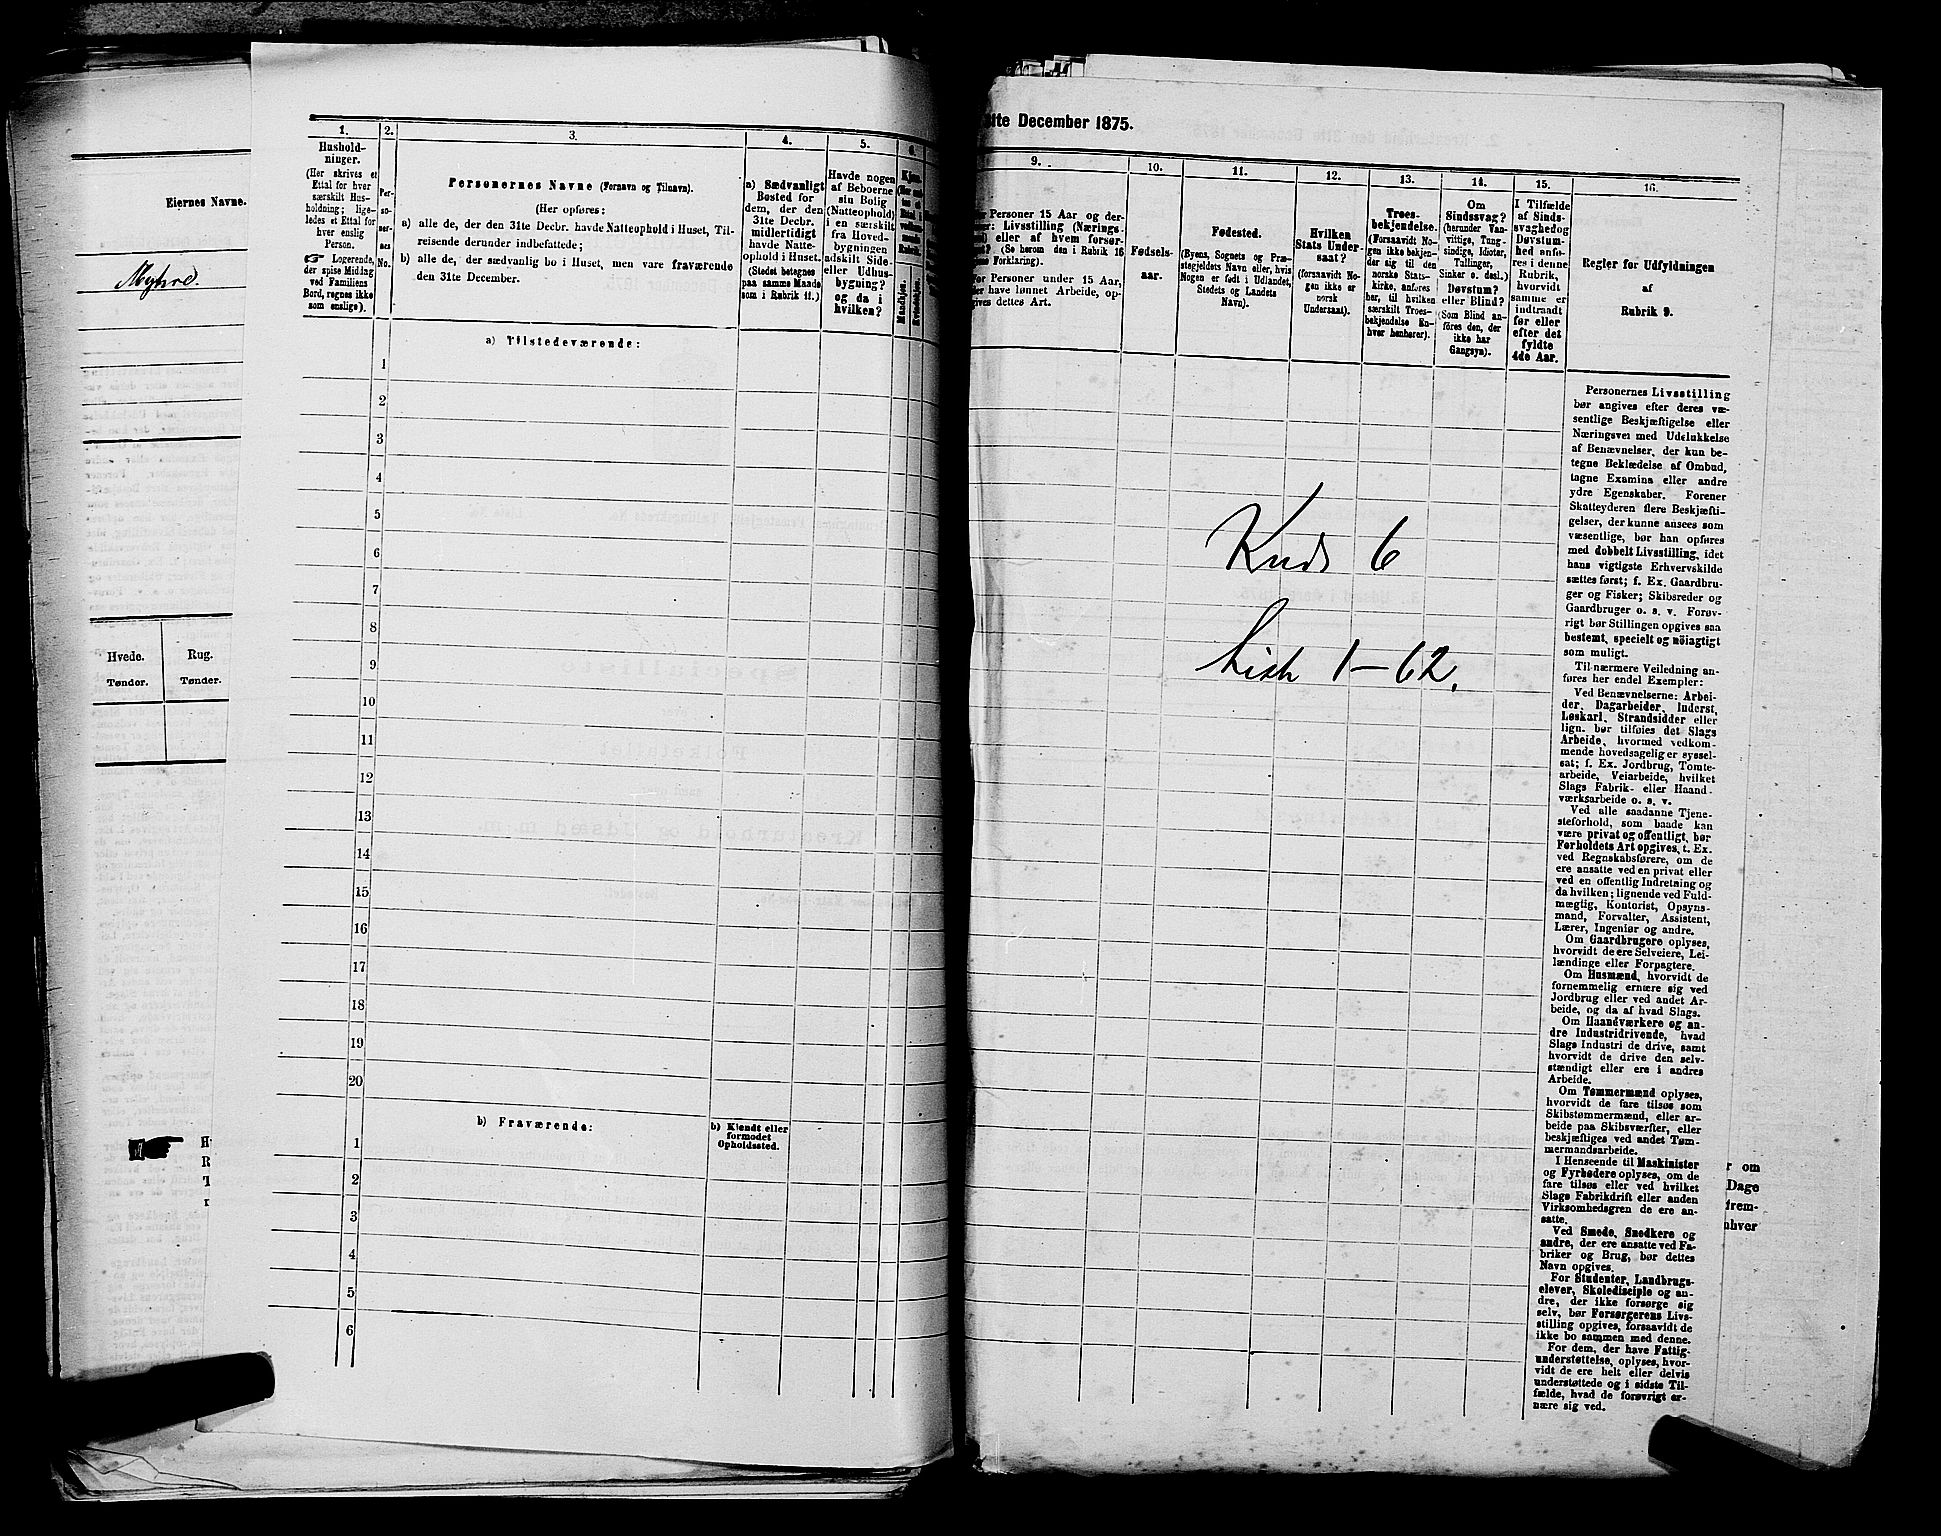 Eiernes Navne.
Myhre.
Hvede.
Rug.
Tønder.
Tønder.
1.
Hushold-
ninger.
(Her skrives et
Ettal for hver
særskilt Hus-
holdning; lige-
ledes et Ettal for
hver enslig
Person.
☞ Logerende,
der spise Middag
ved Familiens
Bord, regnes ikke
som enslige).
2.
Per-
so-
ner-
nes
No.
3.
Personernes Navne (Fornavn og Tilnavn).
(Her opføres:
a) alle de, der den 31te Decbr. havde Natteophold i Huset, Til-
reisende derunder indbefattede;
b) alle de, der sædvanlig bo i Huset, men vare fraværende
den 31te December.
4.
a) Sædvanligt
Bosted for
dem, der den
31te Decbr.
midlertidigt
havde Natte-
ophold i Huset.
(Stedet betegnes
paa samme Maade
som i Rubrik 11.)
5.
Havde nogen
af Beboerne
sin Bolig
(Natteophold)
i en særskilt
fra Hoved-
bygningen
adskilt Side-
eller Udhus-
bygning?
og da i
hvilken?
6.
Kjøn.
Mandkjøn.
Kvindekjøn.
a) Tilstedeværende:
1
2
3
4
5
6
7
8
9
10
11
12
13
14
15
16
17
18
19
20
b) Fraværende:
b) Kjendt eller
formodet
Opholdssted.
1
2
3
4
5
6
31te December 1875.
9.
Personer 15 Aar og der-
Livsstilling (Nærings-
eller af hvem forsør-
(Se herom den i Rubrik 16
Forklaring).
For Personer under 15 Aar,
have lønnet Arbeide, op-
gives dettes Art.
10.
Fødsels-
aar.
11.
Fødested.
(Byens, Sognets og Præ-
stegjeldets Navn eller, hvis
Nogen er født i Udlandet,
Stedets og Landets
Navn).
12.
Hvilken
Stats Under-
saat?
(forsaavidt No-
gen ikke er
norsk
Undersaat).
13.
Troes-
bekjendelse.
(Forsaavidt No-
gen ikke bekjen-
der sig til den
norske Stats-
kirke, anføres
her, til hvilken
særskilt Troes-
bekjendelse En-
hver henhører).
14.
Om
Sindssvag?
(herunder Van-
vittige, Tung-
sindige, Idioter,
Tullinger,
Sinker o. desl.)
Døvstum?
eller Blind?
(Som Blind an-
føres den, der
ikke har
Gangsyn).
15.
I Tilfælde
af Sinds-
svaghed og
Døvstum-
hed anfø-
res i denne
Rubrik,
hvorvidt
samme er
indtraadt
før eller
efter det
fyldte
4de Aar.
16.
Regler for Udfyldningen
af
Rubrik 9.
Personernes Livsstilling
bør angives efter deres væ-
sentlige Beskjæftigelse eller
Næringsvei med Udelukkelse
af Benævnelser, der kun be-
tegne Beklædelse af Ombud,
tagne Examina eller andre
ydre Egenskaber. Forener
Skatteyderen flere Beskjæfti-
gelser, der kunne ansees som
væsentlige, bør han opføres
med dobbelt Livsstilling, idet
hans vigtigste Erhvervskilde
sættes først; f. Ex. Gaardbru-
ger og Fisker; Skibsreder og
Gaardbruger o. s. v. Forøv-
rigt bør Stillingen opgives saa
bestemt, specielt og nøiagtigt
som muligt.
Til nærmere Veiledning an-
føres her endel Exempler:
Ved Benævnelserne: Arbei-
der, Dagarbeider, Inderst,
Løskarl, Strandsidder eller
lign. bør tilføies det Slags
Arbeide, hvormed vedkom-
mende hovedsagelig er syssel-
sat; f. Ex. Jordbrug, Tomte-
arbeide, Veiarbeide, hvilket
Slags Fabrik- eller Haand-
værksarbeide o. s. v.
Ved alle saadanne Tjene-
steforhold, som baade kan
være privat og offentligt, bør
Forholdets Art opgives, t. Ex.
ved Regnskabsførere, om de
ere ansatte ved en privat eller
ved en offentlig Indretning og
da hvilken; lignende ved Fuld-
mægtig, Kontorist, Opsyns-
mand, Forvalter, Assistent,
Lærer, Ingeniør og andre.
Om Gaardbrugere oplyses,
hvorvidt de ere Selveiere, Lei-
lændinge eller Forpagtere.
Om Husmænd, hvorvidt de
fornemmelig ernære sig ved
Jordbrug eller ved andet Ar-
beide, og da af hvad Slags.
Om Haandværkere og an-
dre Industridrivende, hvad
Slags Industri de drive, samt
hvorvidt de drive den selv-
stændigt eller ere i andres
Arbeide.
Om Tømmermænd oplyses,
hvorvidt de fare tilsøs som
Skibstømmermænd, eller ar-
beide paa Skibsværfter, eller
beskjæftiges ved andet Tøm-
mermandsarbeide.
I Henseende til Maskinister
og Fyrbødere oplyses, om de
fare tilsøs eller ved hvilket
Slags Fabrikdrift eller anden
Virksomhedsgren de ere an-
satte.
Ved Smede, Snedkere og
andre, der ere ansatte ved Fa-
briker og Brug, bør dettes
Navn opgives.
For Studenter, Landbrugs-
elever, Skoledisciple og an-
dre, der ikke forsørge sig
selv, bør Forsørgerens Livs-
stilling opgives, forsaavidt de
ikke bo sammen med denne.
For dem, der have Fattig-
understøttelse, oplyses, hvor-
vidt de ere helt eller delvis
understøttede og i sidste Til-
fælde, hvad de forøvrigt er-
nære sig ved.
6
1–62.
r om
Dage
frem-
nhver